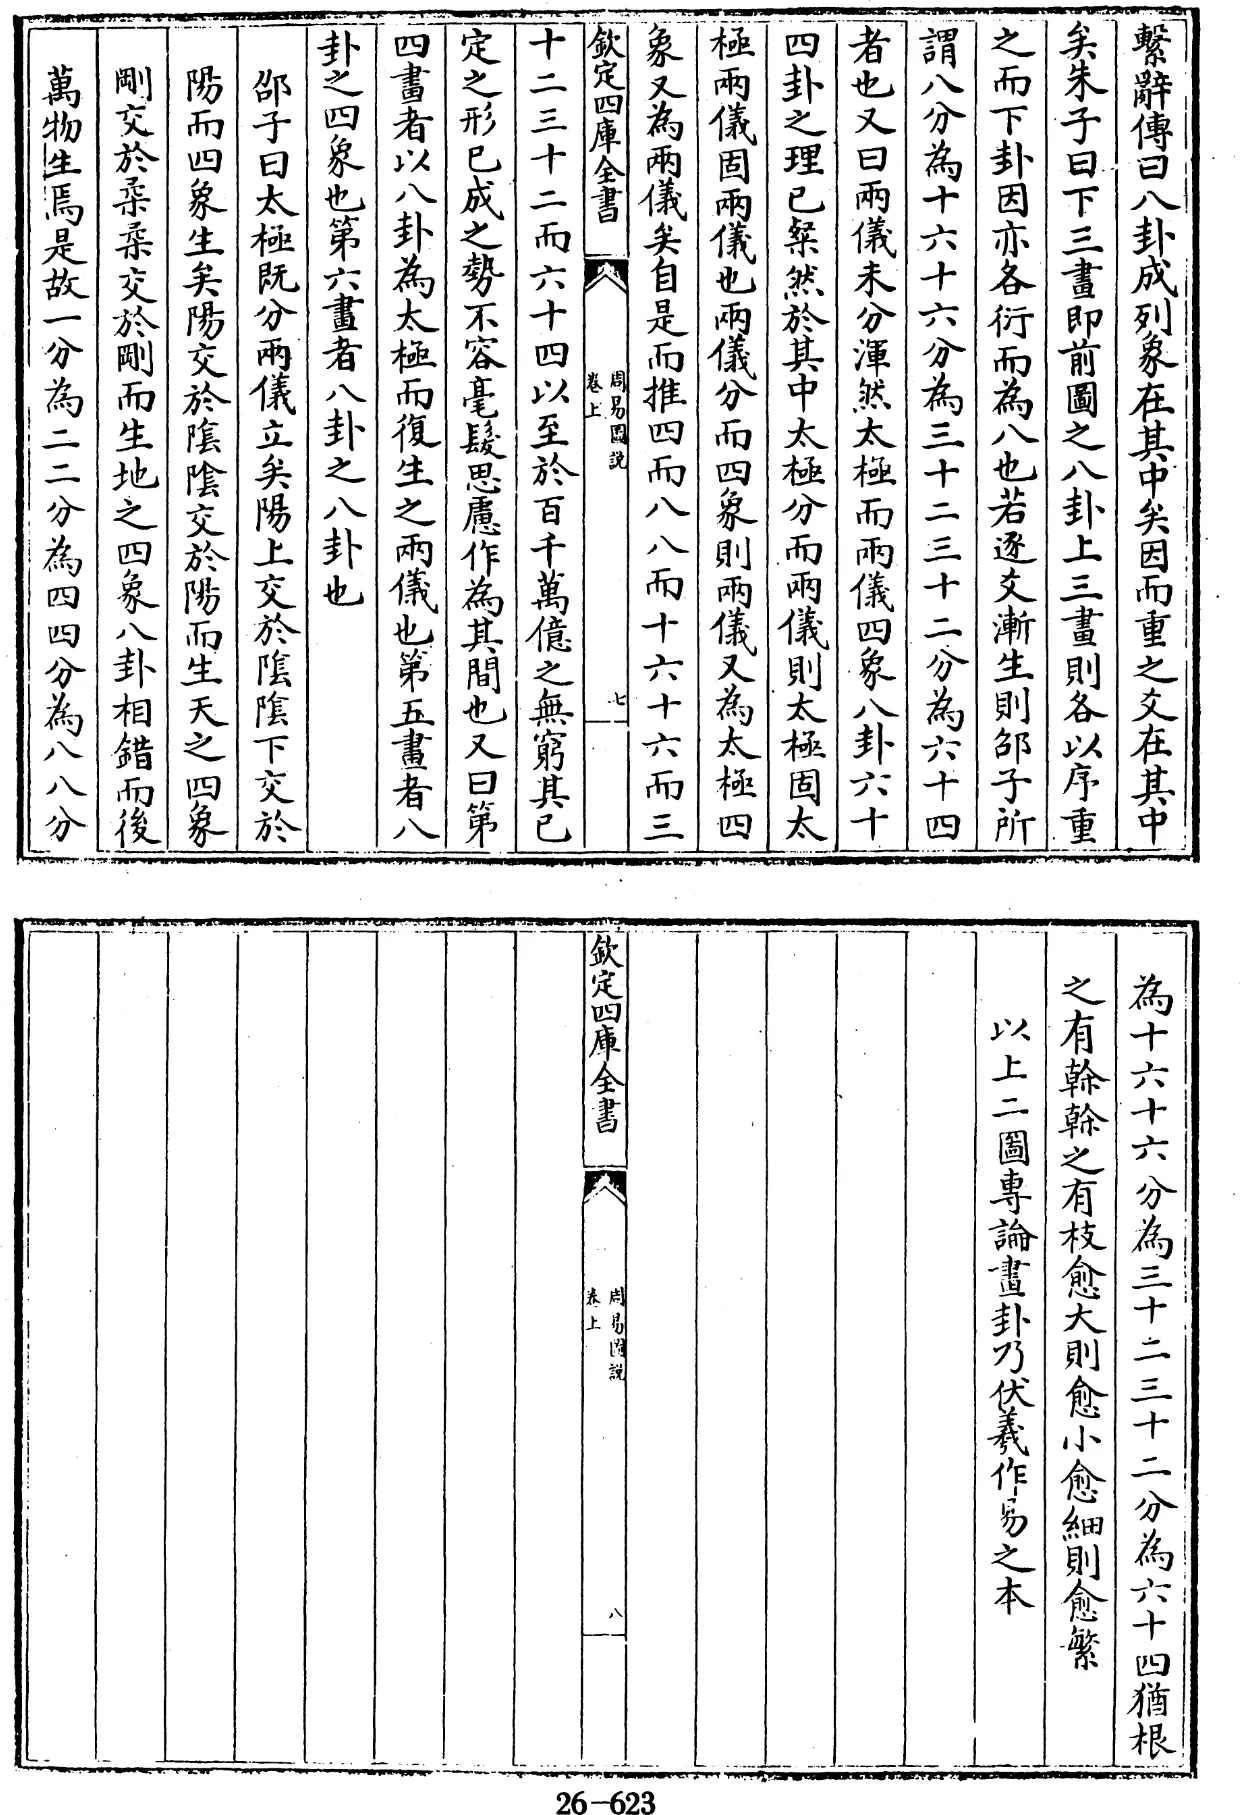 繫辭傳曰八卦成列象在其中矣因而重之爻在其中
矣朱子曰下三畫即前圖之八卦上三畫則各以序重
之而下卦因亦各衍而為八也若逐爻漸生則邵子所
謂八分為十六十六分為三十二三十二分為六十四
者也又曰兩儀未分渾然太極而兩儀四象八卦六十
四卦之理已粲然於其中太極分而兩儀則太極固太
極兩儀固兩儀也兩儀分而四象則兩儀又為太極四
象又為兩儀矣自是而推四而八八而十六十六而三
欽定四庫全書
周易圖說
卷上
七
十二三十二而六十四以至於百千萬億之無窮其已
定之形已成之勢不容毫髮思慮作為其間也又曰第
四畫者以八卦為太極而復生之兩儀也第五畫者八
卦之四象也第六畫者八卦之八卦也
邵子曰太極既分兩儀立矣陽上交於陰陰下交於
陽而四象生矣陽交於陰陰交於陽而生天之四象
剛交於柔柔交於剛而生地之四象八卦相錯而後
萬物生焉是故一分為二二分為四四分為八八分
為十六十六分為三十二三十二分為六十四猶根
之有榦榦之有枝愈大則愈小愈細則愈繁
以上二圖專論畫卦乃伏羲作易之本
欽定四庫全書
周易圖說
卷上
八
26-623